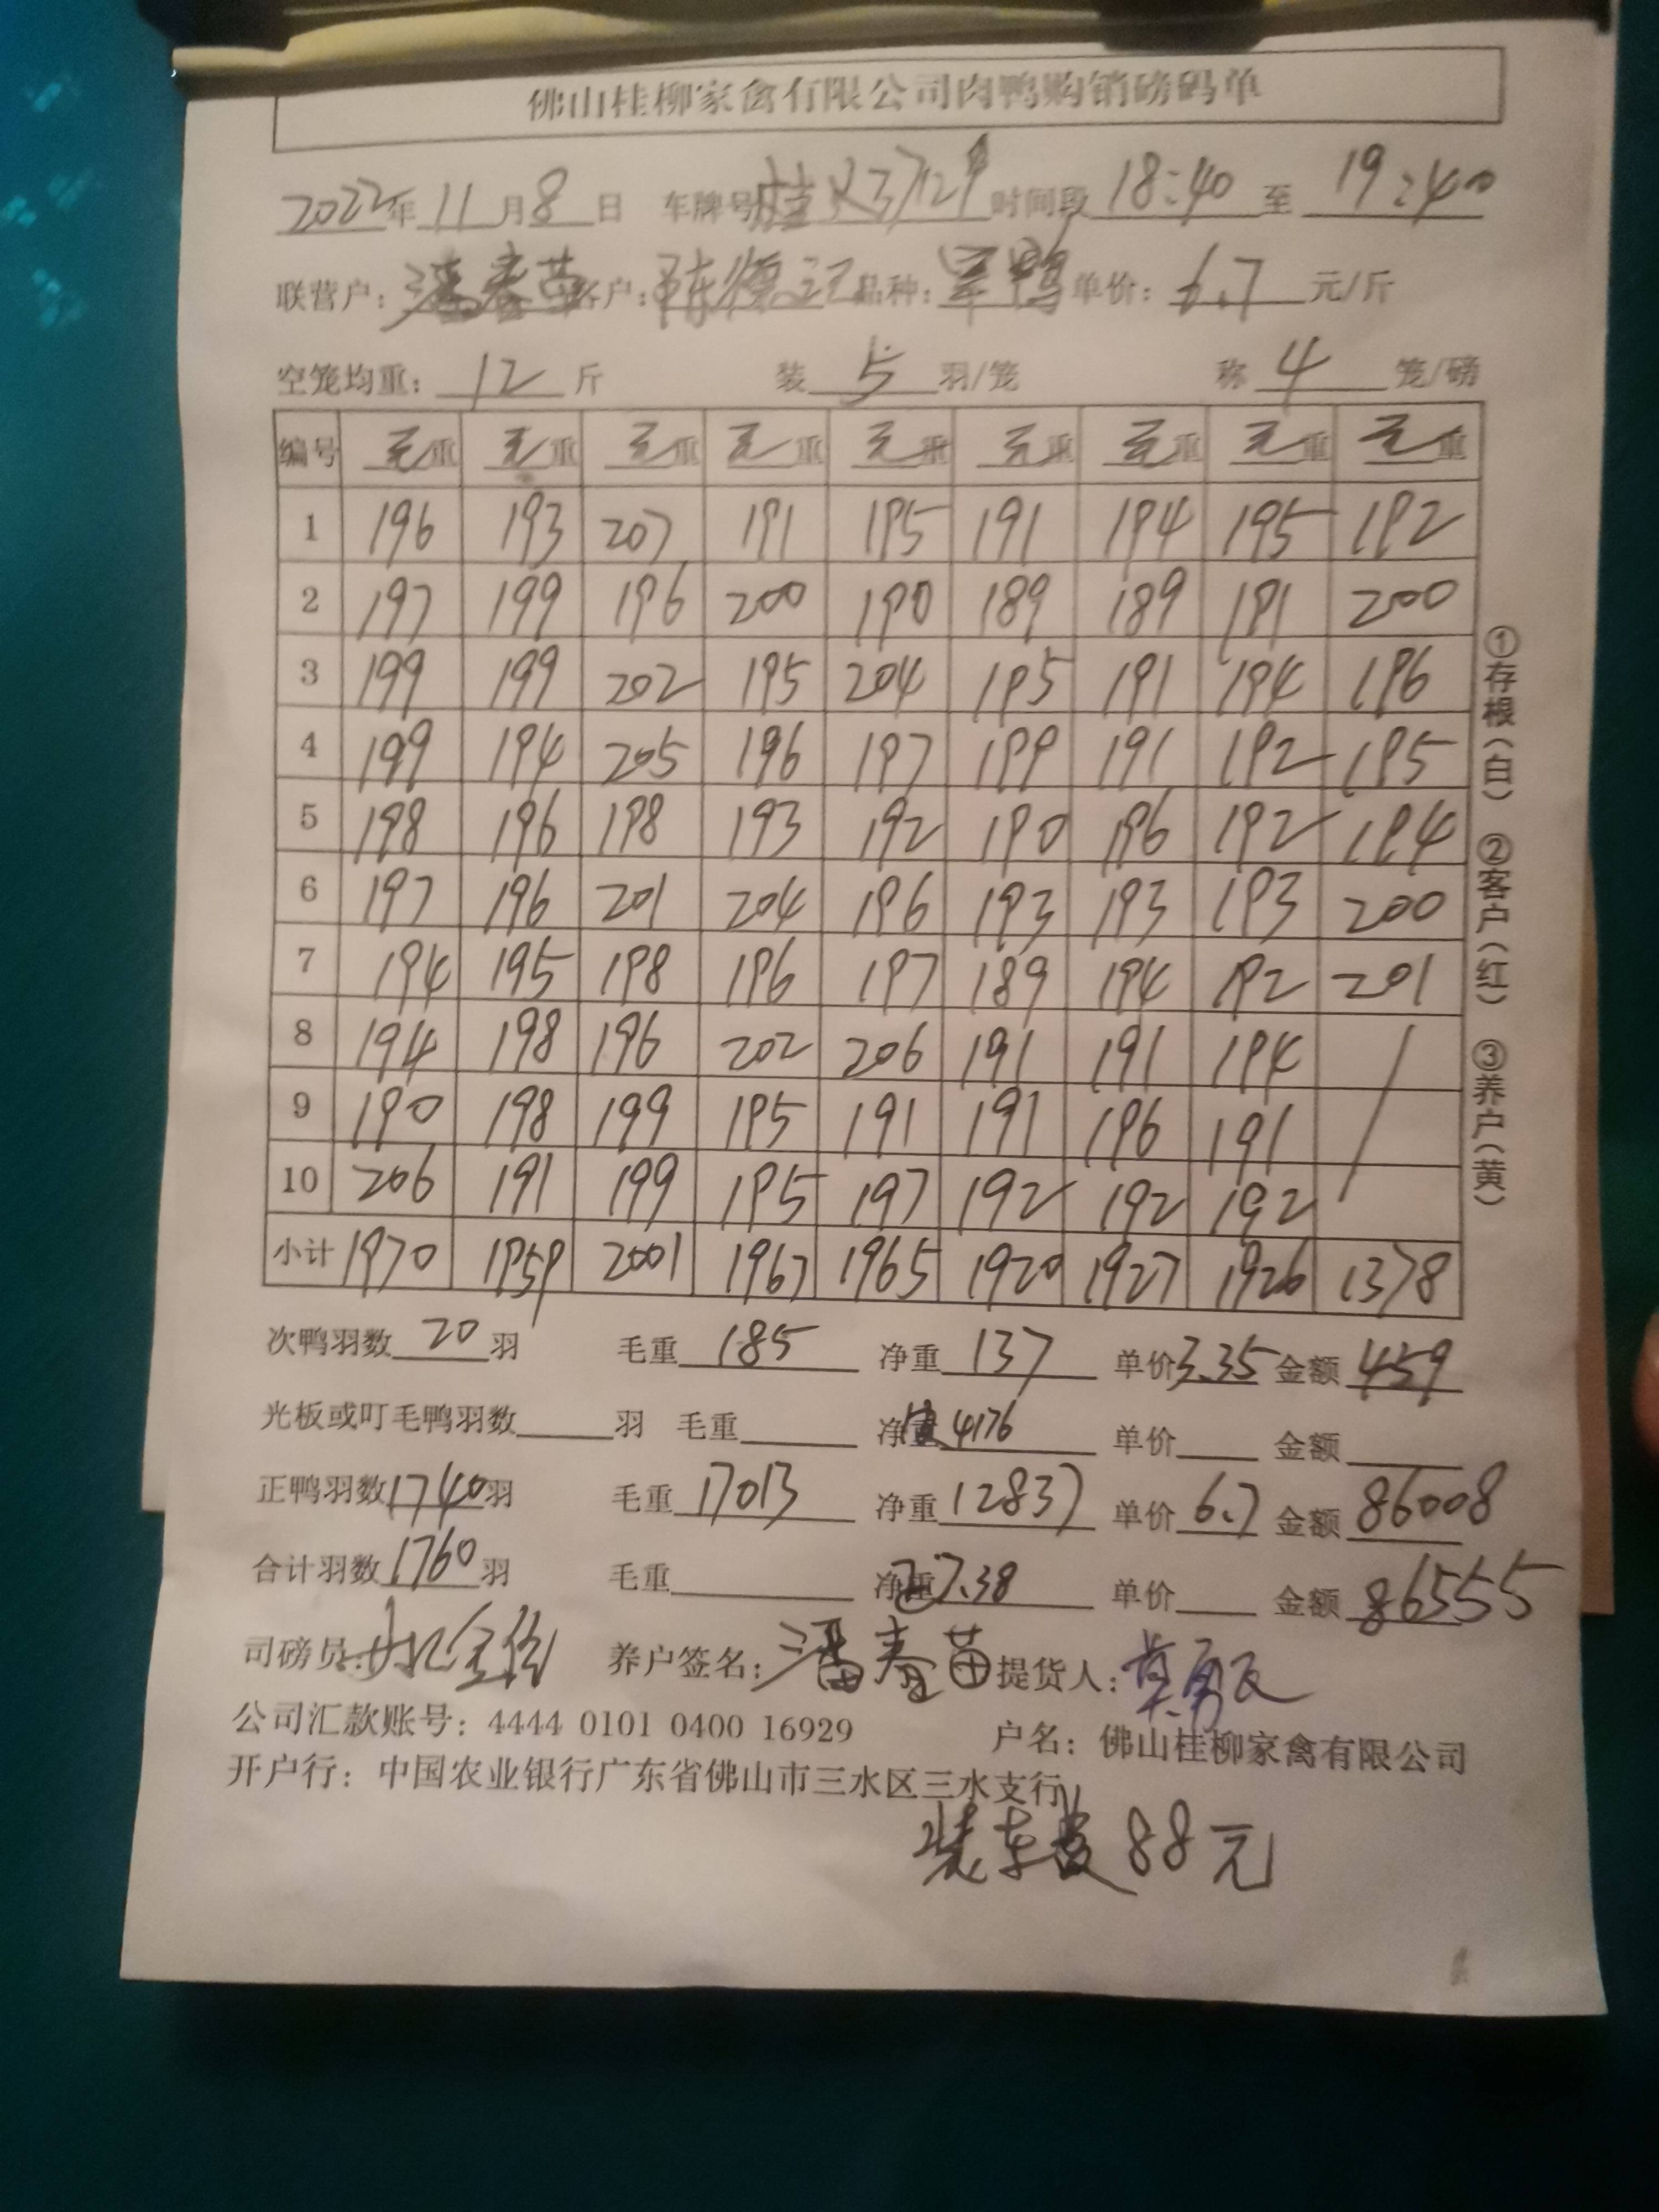 佛山桂柳家禽有限公司肉鸭购销磅码单
2022年11月8日 车牌号 时间段18:40至19:40
联营户:潘春苗 客户:陈德记 品种:鸭 单价:6.7元/斤
空笼均重:12斤 装5羽/笼 称4笼/磅
编号 毛重 毛重 毛重 毛重 毛重 毛重 毛重 毛重 毛重
1 196 193 207 191 195 191 194 195 192
2 197 199 196 200 190 189 189 191 200
3 199 199 202 195 204 195 191 194 196
4 199 194 205 196 197 199 191 192 195
5 198 196 198 193 192 190 196 192 194
6 197 196 201 204 196 193 193 193 200
7 194 195 198 196 197 189 194 192 201
8 194 198 196 202 206 191 191 194
9 190 198 199 195 191 191 196 191
10 206 191 199 195 197 192 192 192
小计 1970 1959 2001 1967 1965 1920 1927 1926 1378
次鸭羽数20羽 毛重185 净重137 单价3.35 金额459
光板或叮毛鸭羽数 羽 毛重 净重4176 单价 金额
正鸭羽数1740羽 毛重17013 净重12837 单价6.7 金额86008
合计羽数1760羽 毛重 净重7.38 单价 金额86555
司磅员: 养户签名:潘春苗 提货人:
公司汇款账号:4444 0101 0400 16929 户名:佛山桂柳家禽有限公司
开户行:中国农业银行广东省佛山市三水区三水支行
装车费88元
①存根(白) ②客户(红) ③养户(黄)